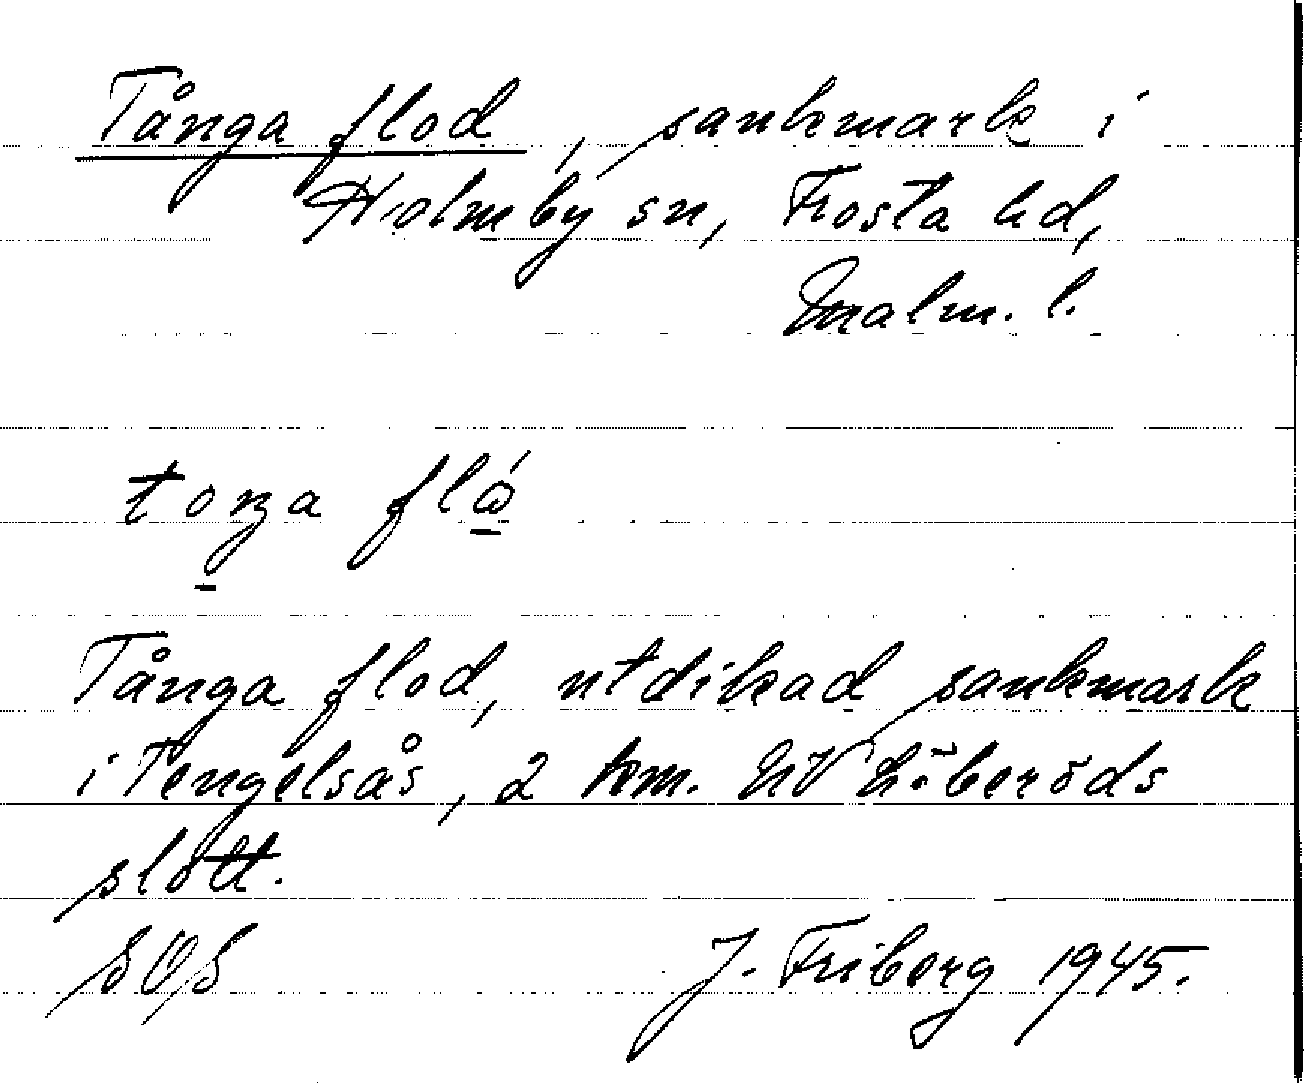 Tånga flod, sankmark i
Holmby sn, Frosta hd,
Malm. l.
toŋa fló
Tånga flod, utdikad sankmark
i Tengelsås, 2 km. NV Löberöds
slott.
SOS J. Friberg 1945.